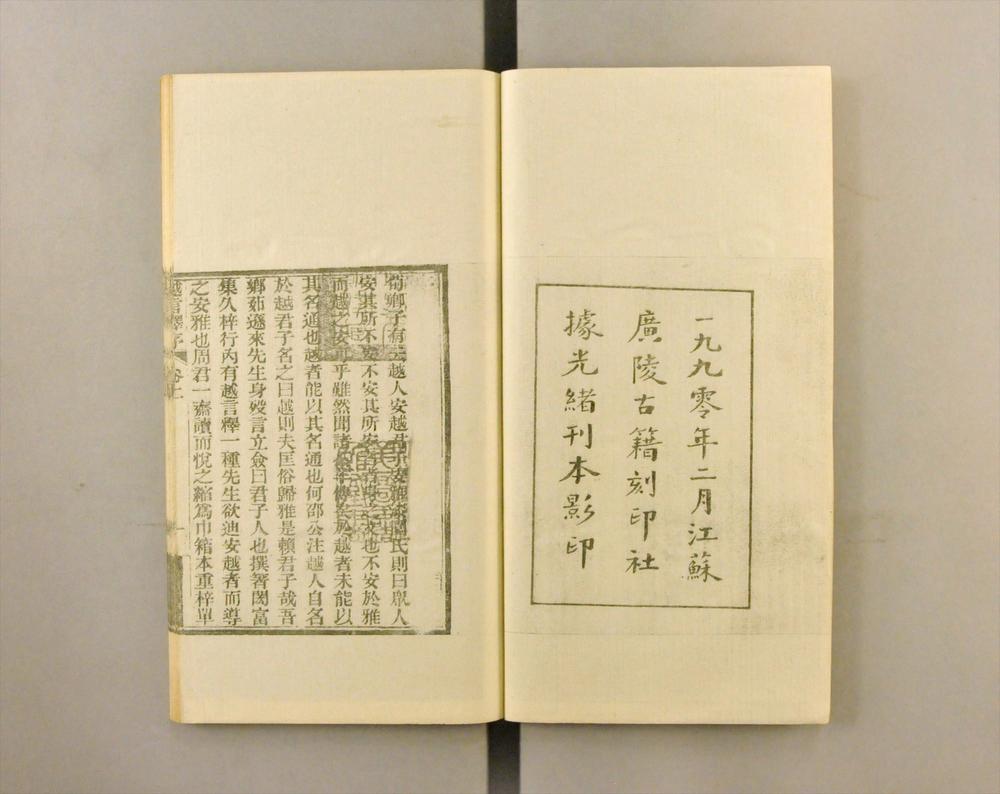 一九九零年二月江蘇
廣陵古籍刻印社
據光緒刊本影印
荀卿子有云越人安越君子安雅漆園氏則曰眾人
安其所不安不安其所安也不安於雅
而越之安可乎雖然聞諸於越者未能以
其名通也越者能以其名通也何邵公注越人自名
於越君子名之曰越則夫匡俗歸雅是賴君子哉吾
鄉茹遜來先生身歿言立僉曰君子人也撰著閎富
集久梓行內有越言釋一種先生欲迪安越者而導
之安雅也周君一齋讀而悅之縮為巾箱本重梓單
越言釋序 卷上 一